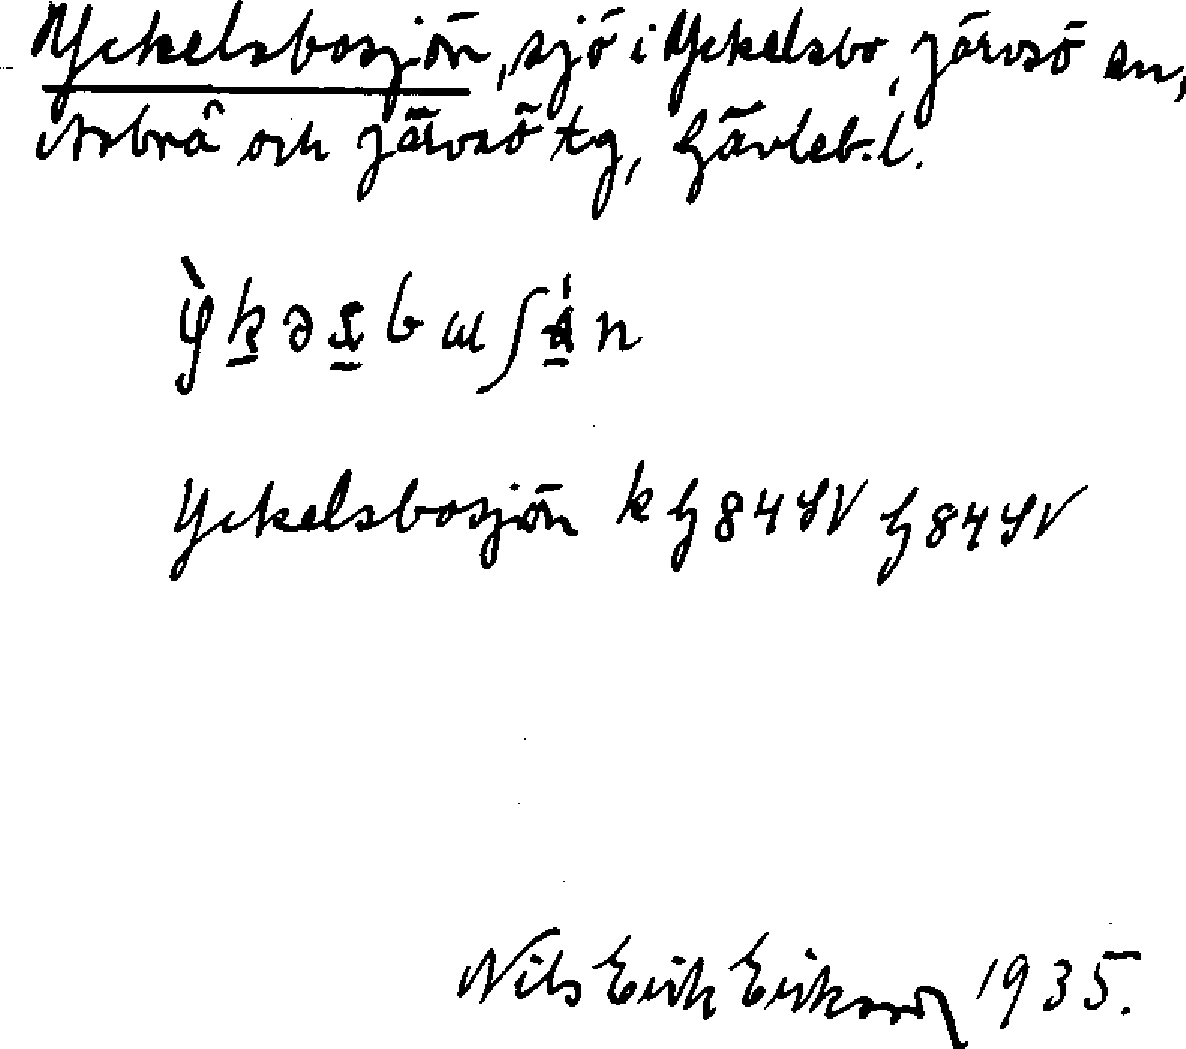 Yckelsbosjön, sjö i Yckelsbo, Järvsö sn,
Arbrå och Järvsö tg, Gävleb. l.
Yckelsbosjön k G 84 SV G 84 SV
Nils Erik Erikson 1935.